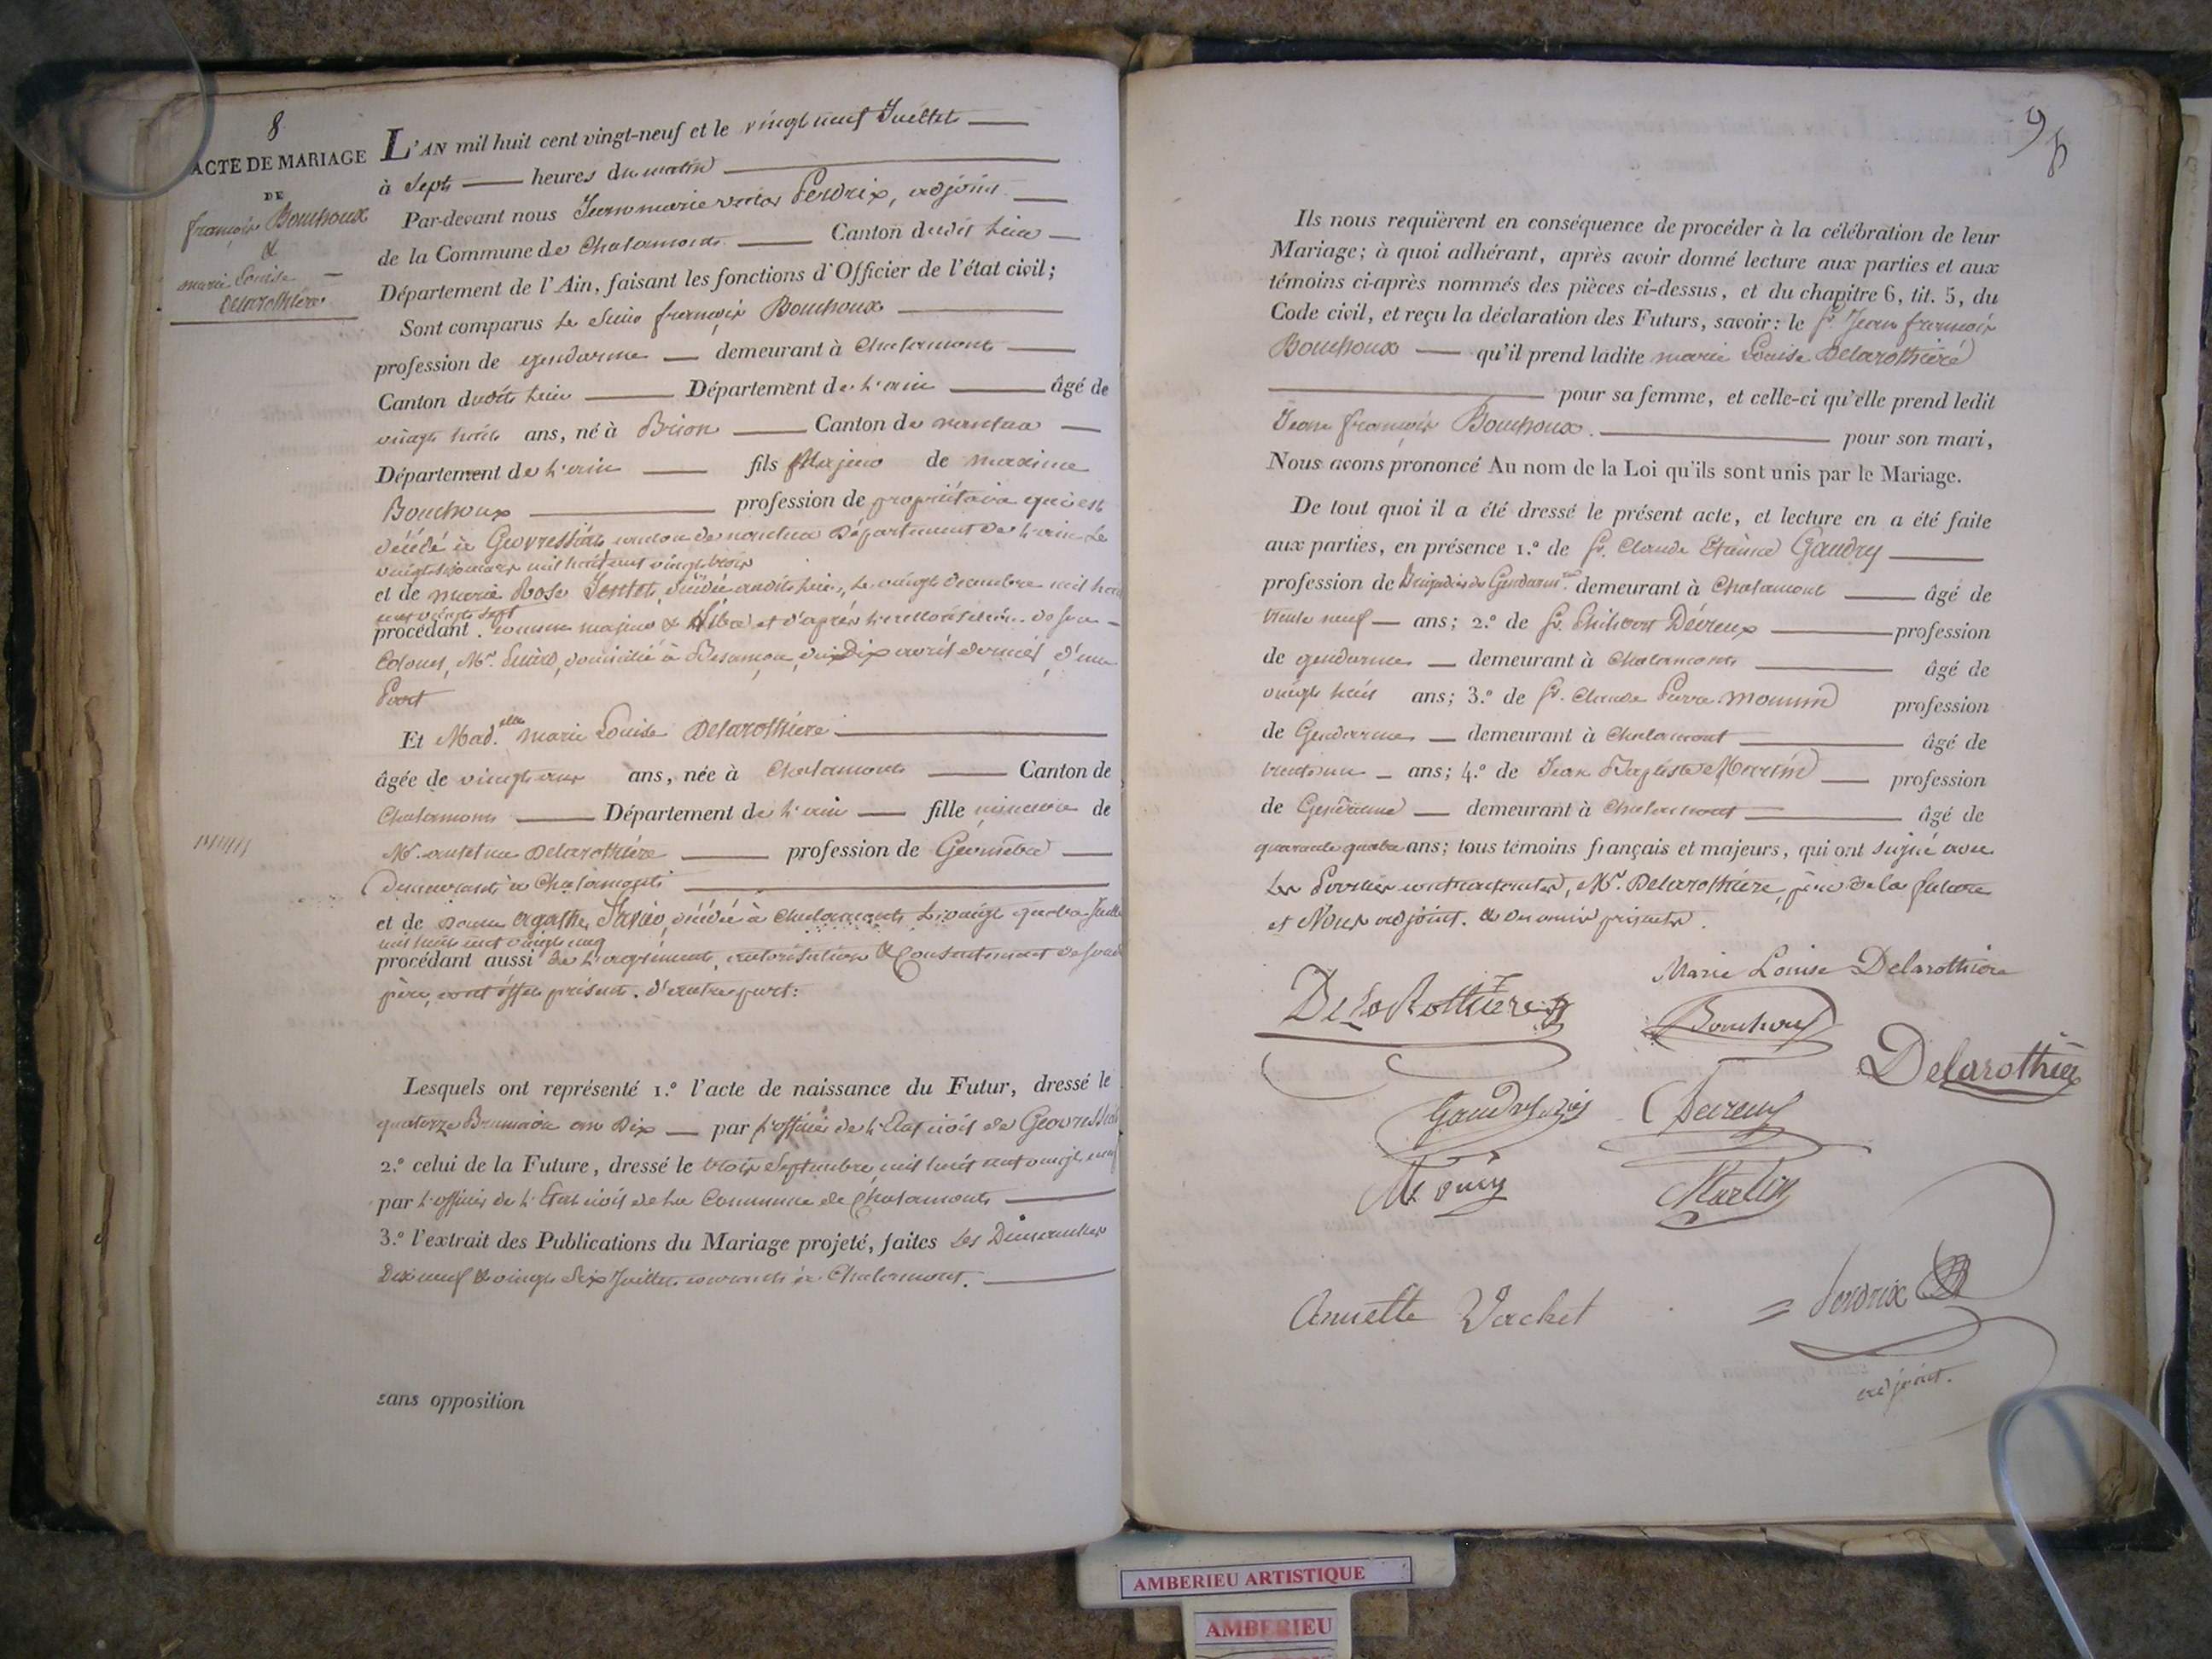 8
ACTE DE MARIAGE
DE
françois Bouchoux
&
marie Louise
Delarothière
L'AN mil huit cent vingt-neuf et le vingt neuf Juillet
à Sept heures du matin
Par-devant nous Jean marie victor Perdrix, adjoint
de la Commune de Chalamont Canton dudit Lieu
Département de l'Ain, faisant les fonctions d'Officier de l'état civil;
Sont comparus Le Sieur françois Bouchoux
profession de gendarme demeurant à Chalamont
Canton dudit Lieu Département de L'ain âgé de
vingt huit ans, né à Brion Canton de nantua
Département de L'ain fils Majeur de maxime
Bouchoux profession de propriétaire qui est
décédé à Geovressiat canton de nantua Département de L'ain Le
mil huit cent vingt trois
et de marie Rose décédée audit Lieu, Le vingt Decembre mil huit
cent vingt sept
procédant comme majeur & Libre et d'après L'autorisation de son
Colonel, Mr. domicilié à Besançon, du Dix avril dernier, d'une
Part
Et Mad.elle marie Louise Delarothière
âgée de vingt ans, née à Chalamont Canton de
Chalamont Département de L'ain fille mineure de
Mr. anselme Delarothière profession de Géomètre
Demeurant à Chalamont
et de Dame Agathe décédée à Chalamont Le vingt quatre Juillet
mil huit cent vingt cinq
procédant aussi de L'agrément, autorisation & Consentement de son dit
père, présent. d'autre part:
Lesquels ont représenté 1.º l'acte de naissance du Futur, dressé le
quatorze Brumaire an Dix par L'officier de L'Etat civil de Geovressiat
2.º celui de la Future, dressé le trois Septembre mil huit cent
par L'officier de L'Etat civil de La Commune de Chalamont
3.º l'extrait des Publications du Mariage projeté, faites Les Dimanches
Dix neuf & vingt Six Juillet courant à Chalamont.
sans opposition
9
Ils nous requièrent en conséquence de procéder à la célébration de leur
Mariage; à quoi adhérant, après avoir donné lecture aux parties et aux
témoins ci-après nommés des pièces ci-dessus, et du chapitre 6, tit. 5, du
Code civil, et reçu la déclaration des Futurs, savoir: le Sr. Jean françois
Bouchoux qu'il prend ladite marie Louise Delarothière
pour sa femme, et celle-ci qu'elle prend ledit
Jean françois Bouchoux. pour son mari,
Nous avons prononcé Au nom de la Loi qu'ils sont unis par le Mariage.
De tout quoi il a été dressé le présent acte, et lecture en a été faite
aux parties, en présence 1.º de Sr. Claude Etienne Gaudry
profession de Brigadier de Gendarmrie demeurant à Chalamont âgé de
trente neuf ans; 2.º de Sr. Philibert Dévreux profession
de gendarme demeurant à Chalamont âgé de
vingt huit ans; 3.º de Sr. Claude Pierre Mounin profession
de Gendarme demeurant à Chalamont âgé de
trente un ans; 4.º de Jean Baptiste Martin profession
de Gendarme demeurant à Chalamont âgé de
quarante quatre ans; tous témoins français et majeurs, qui ont signé avec
Les Parties contractantes, Mr. Delarothière, père de la future
et Nous adjoint. & Des amis présents.
Marie Louise Delarothiere
DelaRothiere
Bouchoux
Delarothiere
Gaudry
Devreux
Martin
Annette Vachet
Perdrix
adjoint.
AMBERIEU ARTISTIQUE
AMBERIEU